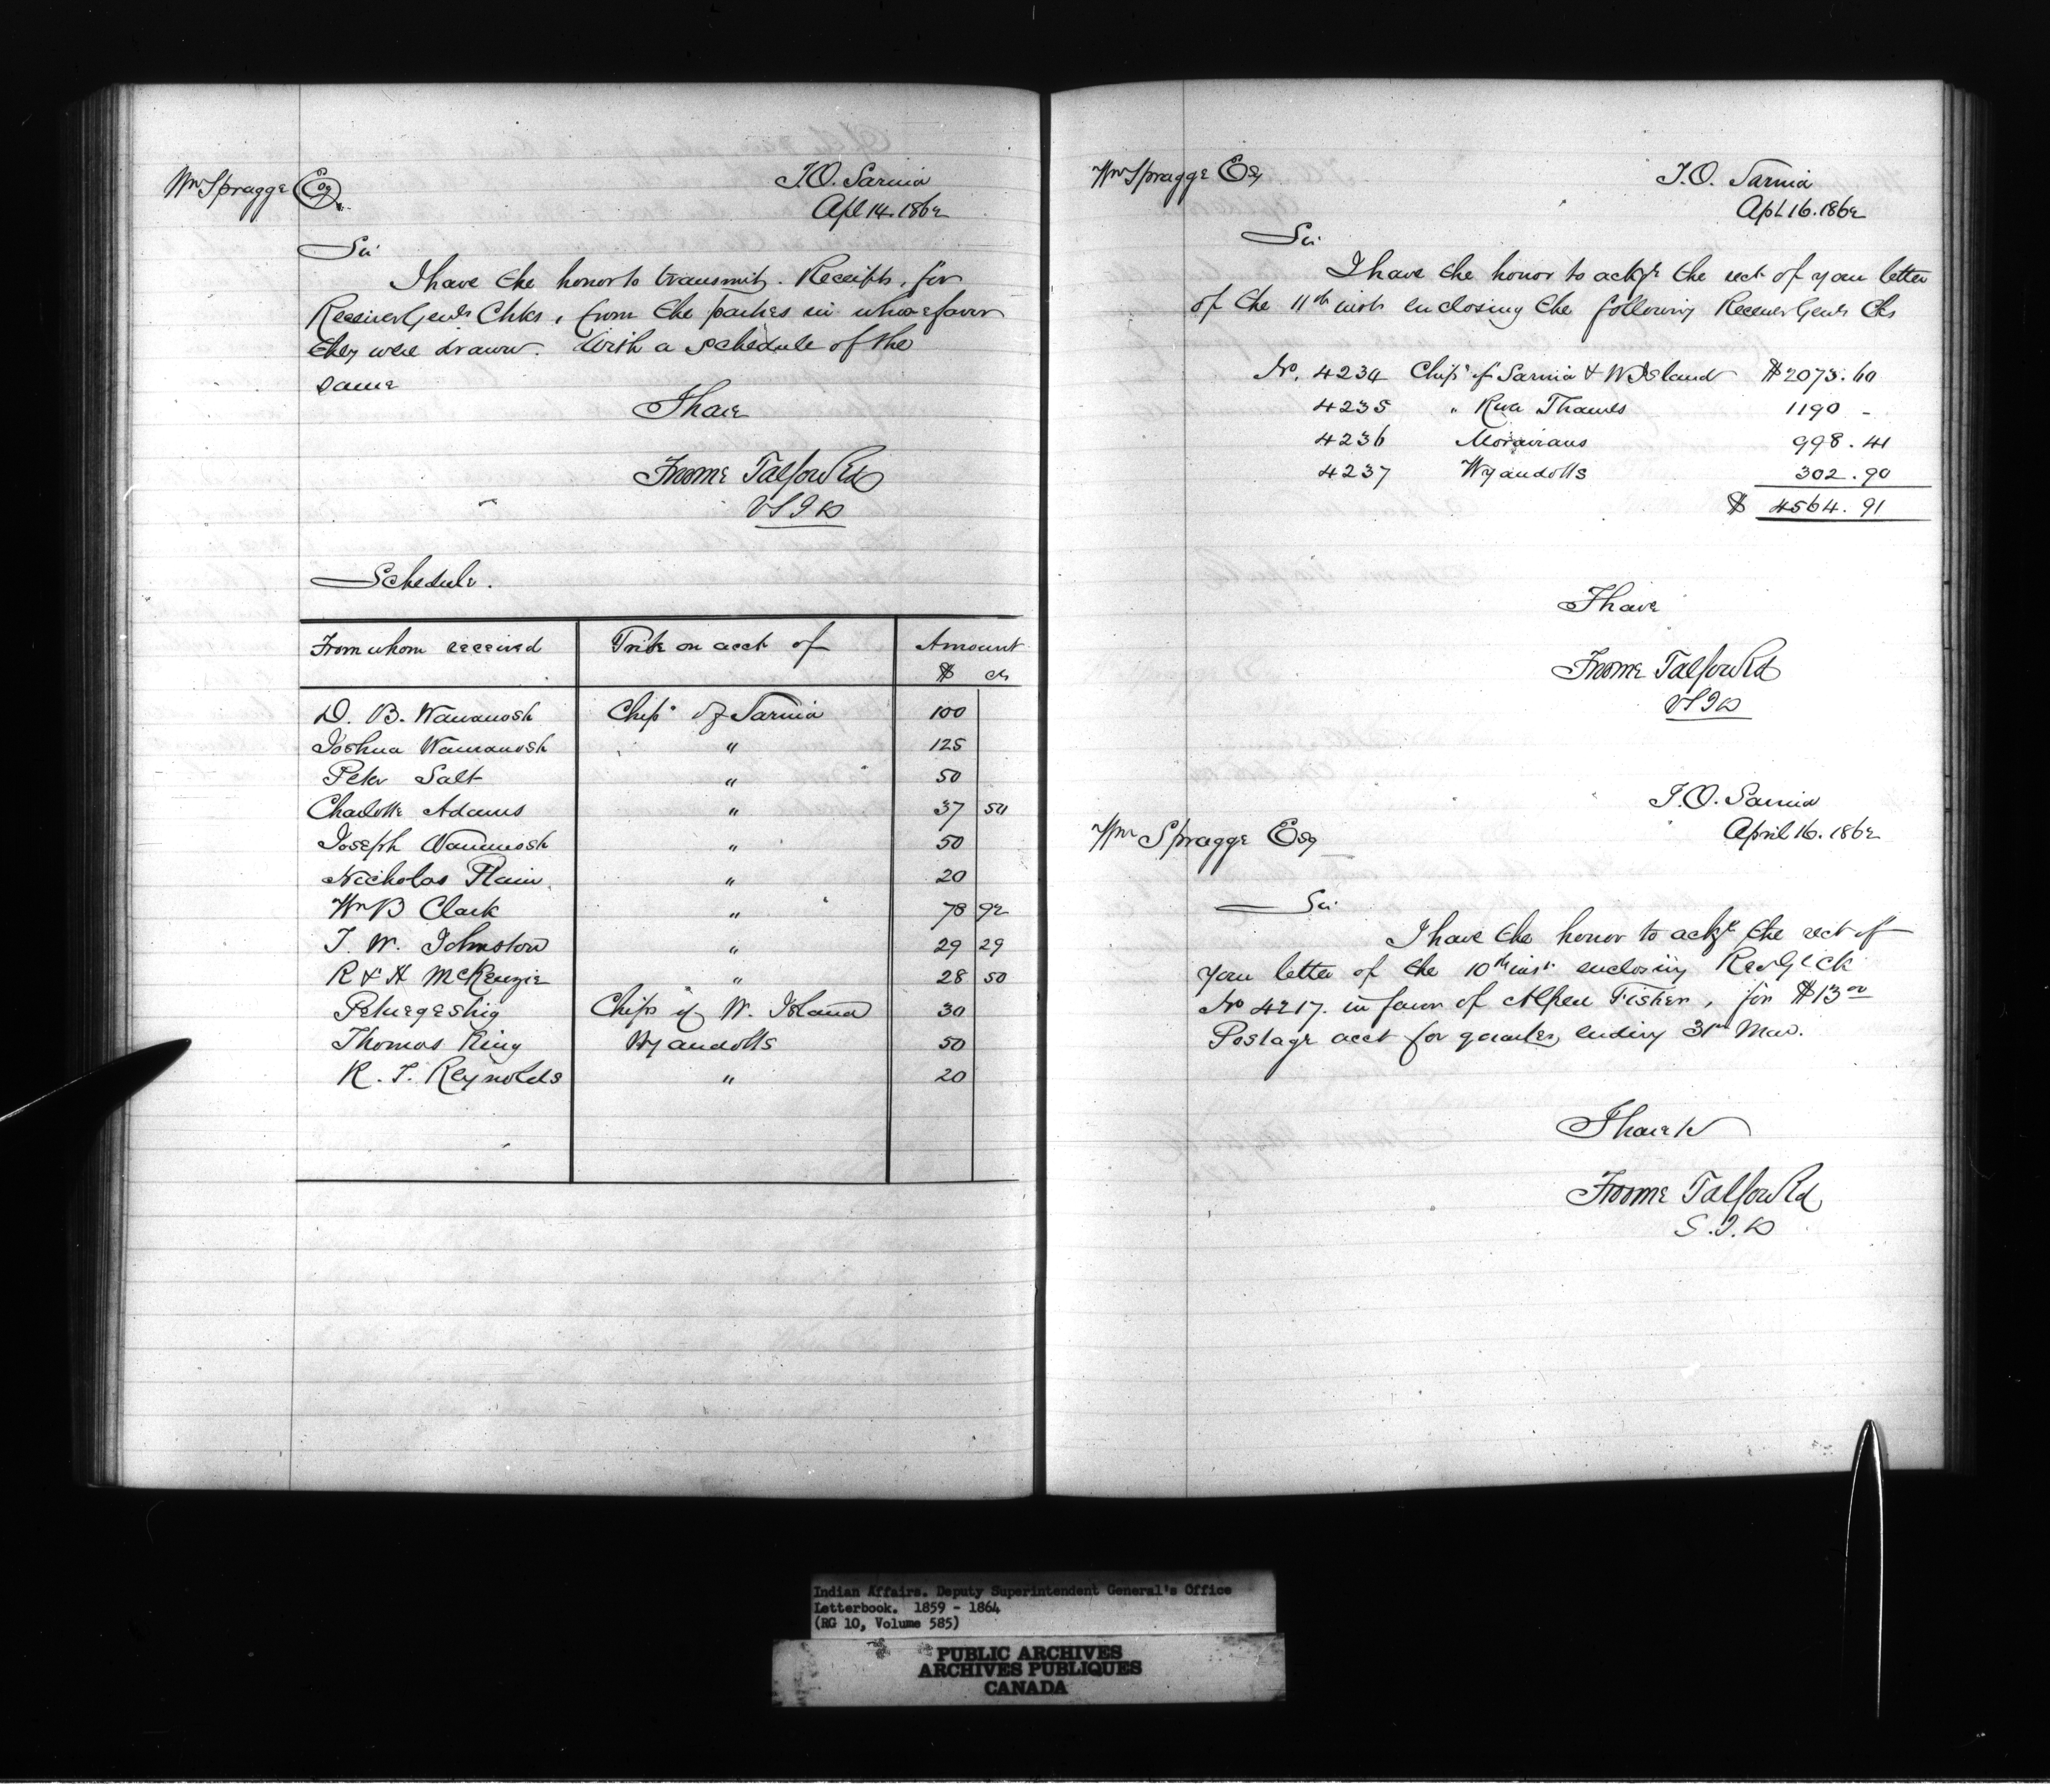 Wm Spragge Esq
I.O. Sarnia
Apl 14. 1862
Sir
I have the honor to transmit. Receipts, for
Receiver Genls Chks, from the parties in whose favor
they were drawn. With a schedule of the
same
I have
Froome Talfourd
VSID
Schedule.
From whom received Tribe on acct of Amount
$ cts
D. B. Wawanosh Chips of Sarnia 100
Joshua Wawanosh " 125
Peter Salt " 50
Charlotte Adams " 37 50
Joseph Wawanosh " 50
Nicholas Plain " 20
Wm B Clark " 78 92
T. W. Johnston " 29 29
R & H McKenzie " 28 50
Petwegeshig Chips of W. Island 30
Thomas King Wyandotts 50
R. T. Reynolds " 20
Wm Spragge Esq
I.O. Sarnia
Apl 16. 1862
Sir
I have the honor to ackge the rect of your letter
of the 11th inst enclosing the following Receiver Genls Chs
No. 4234 Chips of Sarnia & W Island $2073.60
4235 " River Thames 1190 -
4236 Moravians 998.41
4237 Wyandotts 302.90
$ 4564.91
I have
Froome Talfourd
VSID
I.O. Sarnia
April 16. 1862
Wm Spragge Esq
Sir
I have the honor to ackge the rect of
your letter of the 10th inst enclosing Rec G Ck
No 4217. in favor of Alpheu Fisher, for $13 00
Postage acct for quarter, ending 31st Mar.
I have
Froome Talfourd
S.I.D
Indian Affairs. Deputy Superintendent General's Office
Letterbook. 1859 - 1864
(RG 10, Volume 585)
PUBLIC ARCHIVES
ARCHIVES PUBLIQUES
CANADA